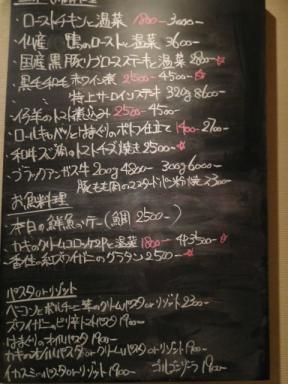 ・ローストチキンと温菜 1800- 3000-
・仏産 鴨のローストと温菜 3600-
・国産黒豚リブロースステーキと温菜 2800-
・黒毛和毛ホワイン煮 2500- 4500-
特上サーロインステーキ 320g 8600-
・仔羊のトマト煮込み 2500- 4500-
・ロールキャベツとはまぐりのポトフ仕立て 1400- 2700-
トマト焼き 2500-
・ブラックアンガス牛 200g 4800- 300g 6000-
豚もも肉のマスタードパン粉焼 2300-
お魚料理
・本日の鮮魚のポワレ(鯛 2500-)
・カキのクリームコロッケ2Pと温菜 1800- 4P3500-
・香住の紅ズワイガニのグラタン 2500-
パスタorリゾット
ベーコンとポルチーニ茸のクリームパスタorリゾット 2300-
ズワイガニのピリ辛トマトパスタ 1900-
はまぐりのオイルパスタ 1900-
カキのオイルパスタorクリームパスタorリゾット 1900-
イカスミパスタorリゾット 1900- ゴルゴンゾーラ 1800-